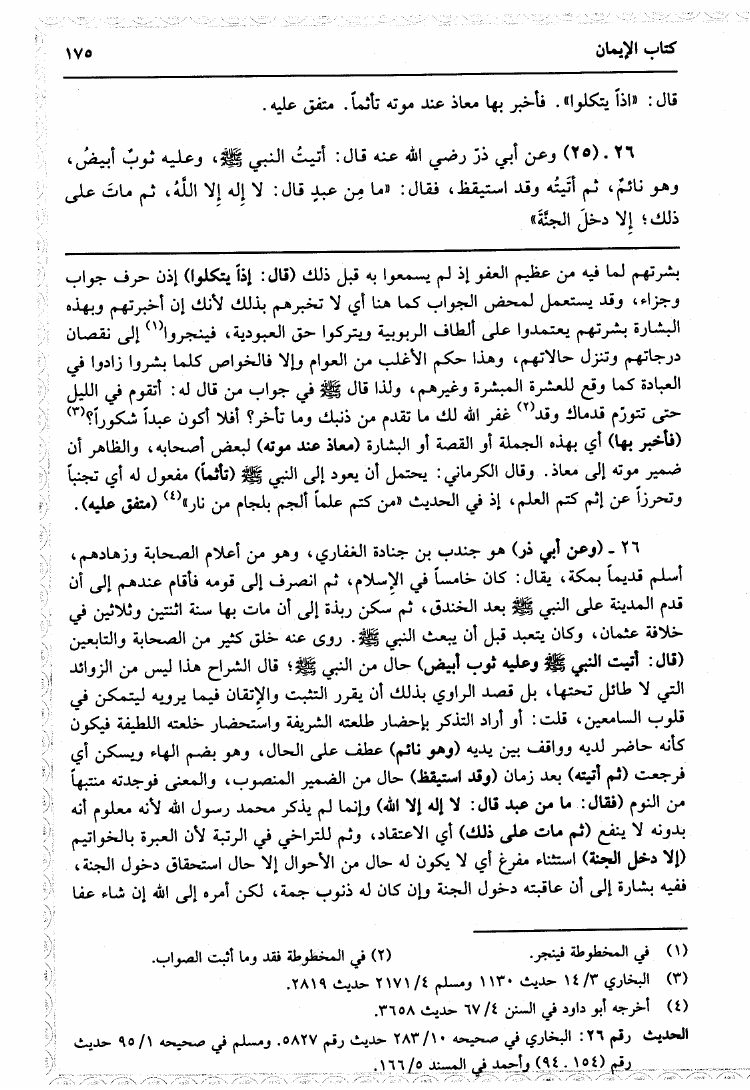 كتاب الإيمان ١٧٥
قال: «اذاً يتكلوا». فأخبر بها معاذ عند موته تأثماً. متفق عليه.
٢٦ ـ (٢٥) وعن أبي ذرّ رضي الله عنه قال: أتيتُ النبي ﷺ، وعليه ثوبٌ أبيضُ،
وهو نائمٌ، ثم أتَيتُه وقد استيقظ، فقال: «ما مِن عبدٍ قال: لا إله إلا اللَّهُ، ثم ماتَ على
ذلك؛ إلا دخلَ الجنَّةَ»
بشرتهم لما فيه من عظيم العفو إذ لم يسمعوا به قبل ذلك (قال: إذاً يتكلوا) إذن حرف جواب
وجزاء، وقد يستعمل لمحض الجواب كما هنا أي لا تخبرهم بذلك لأنك إن أخبرتهم وبهذه
البشارة بشرتهم يعتمدوا على ألطاف الربوبية ويتركوا حق العبودية، فينجروا(١) إلى نقصان
درجاتهم وتنزل حالاتهم، وهذا حكم الأغلب من العوام وإلا فالخواص كلما بشروا زادوا في
العبادة كما وقع للعشرة المبشرة وغيرهم، ولذا قال ﷺ في جواب من قال له: أتقوم في الليل
حتى تتورّم قدماك وقد(٢) غفر الله لك ما تقدم من ذنبك وما تأخر؟ أفلا أكون عبداً شكوراً؟(٣)
(فأخبر بها) أي بهذه الجملة أو القصة أو البشارة (معاذ عند موته) لبعض أصحابه، والظاهر أن
ضمير موته إلى معاذ. وقال الكرماني: يحتمل أن يعود إلى النبي ﷺ (تأثماً) مفعول له أي تجنباً
وتحرزاً عن إثم كتم العلم، إذ في الحديث «من كتم علماً ألجم بلجام من نار»(٤) (متفق عليه).
٢٦ ـ (وعن أبي ذر) هو جندب بن جنادة الغفاري، وهو من أعلام الصحابة وزهادهم،
أسلم قديماً بمكة، يقال: كان خامساً في الإسلام، ثم انصرف إلى قومه فأقام عندهم إلى أن
قدم المدينة على النبي ﷺ بعد الخندق، ثم سكن ربذة إلى أن مات بها سنة اثنتين وثلاثين في
خلافة عثمان، وكان يتعبد قبل أن يبعث النبي ﷺ. روى عنه خلق كثير من الصحابة والتابعين
(قال: أتيت النبي ﷺ وعليه ثوب أبيض) حال من النبي ﷺ؛ قال الشراح هذا ليس من الزوائد
التي لا طائل تحتها، بل قصد الراوي بذلك أن يقرر التثبت والإتقان فيما يرويه ليتمكن في
قلوب السامعين، قلت: أو أراد التذكر بإحضار طلعته الشريفة واستحضار خلعته اللطيفة فيكون
كأنه حاضر لديه وواقف بين يديه (وهو نائم) عطف على الحال، وهو بضم الهاء ويسكن أي
فرجعت (ثم أتيته) بعد زمان (وقد استيقظ) حال من الضمير المنصوب، والمعنى فوجدته منتبهاً
من النوم (فقال: ما من عبد قال: لا إله إلا الله) وإنما لم يذكر محمد رسول الله لأنه معلوم أنه
بدونه لا ينفع (ثم مات على ذلك) أي الاعتقاد، وثم للتراخي في الرتبة لأن العبرة بالخواتيم
(إلا دخل الجنة) استثناء مفرغ أي لا يكون له حال من الأحوال إلا حال استحقاق دخول الجنة،
ففيه بشارة إلى أن عاقبته دخول الجنة وإن كان له ذنوب جمة، لكن أمره إلى الله إن شاء عفا
(١) في المخطوطة فينجر. (٢) في المخطوطة فقد وما أثبت الصواب.
(٣) البخاري ١٤/٣ حديث ١١٣٠ ومسلم ٢١٧١/٤ حديث ٢٨١٩.
(٤) أخرجه أبو داود في السنن ٦٧/٤ حديث ٣٦٥٨.
الحديث رقم ٢٦: البخاري في صحيحه ٢٨٣/١٠ حديث رقم ٥٨٢٧. ومسلم في صحيحه ٩٥/١ حديث
رقم (١٥٤ ـ ٩٤) وأحمد في المسند ١٦٦/٥.